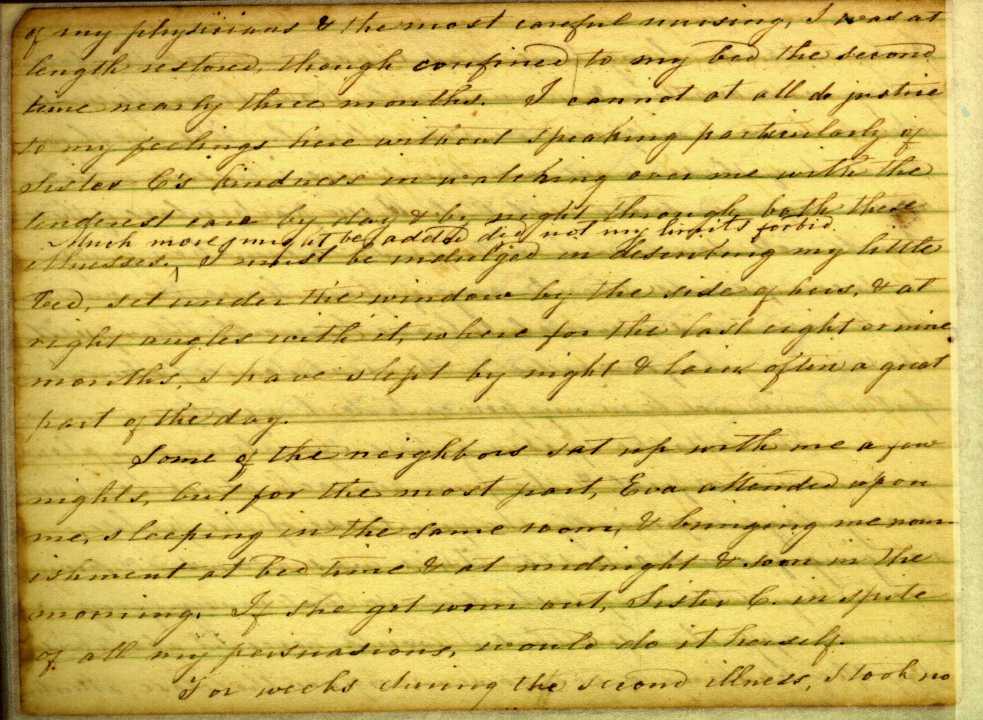 of my physicians & the most careful nursing, I was at
length restored, though confined to my bed the second
time nearly three months. I cannot at all do justice
to my feelings here without speaking particularly of
Sister C's kindness in watching over me with the
tenderest care by day & by night through both these
Much more might be added did not my limits forbid.
illnesses. I must be indulged in describing my little
bed, set under the window by the side of hers, & at
right angles with it, where for the last eight or nine
months, I have slept by night & lain often a great
part of the day.
Some of the neighbors sat up with me a few
nights, but for the most part, Eva attended upon
me, sleeping in the same room, & bringing me nour-
ishment at bed time & at midnight & soon in the
morning. If she got worn out, Sister C. in spite
of all my persuasions, would do it herself.
For weeks during the second illness, I took no